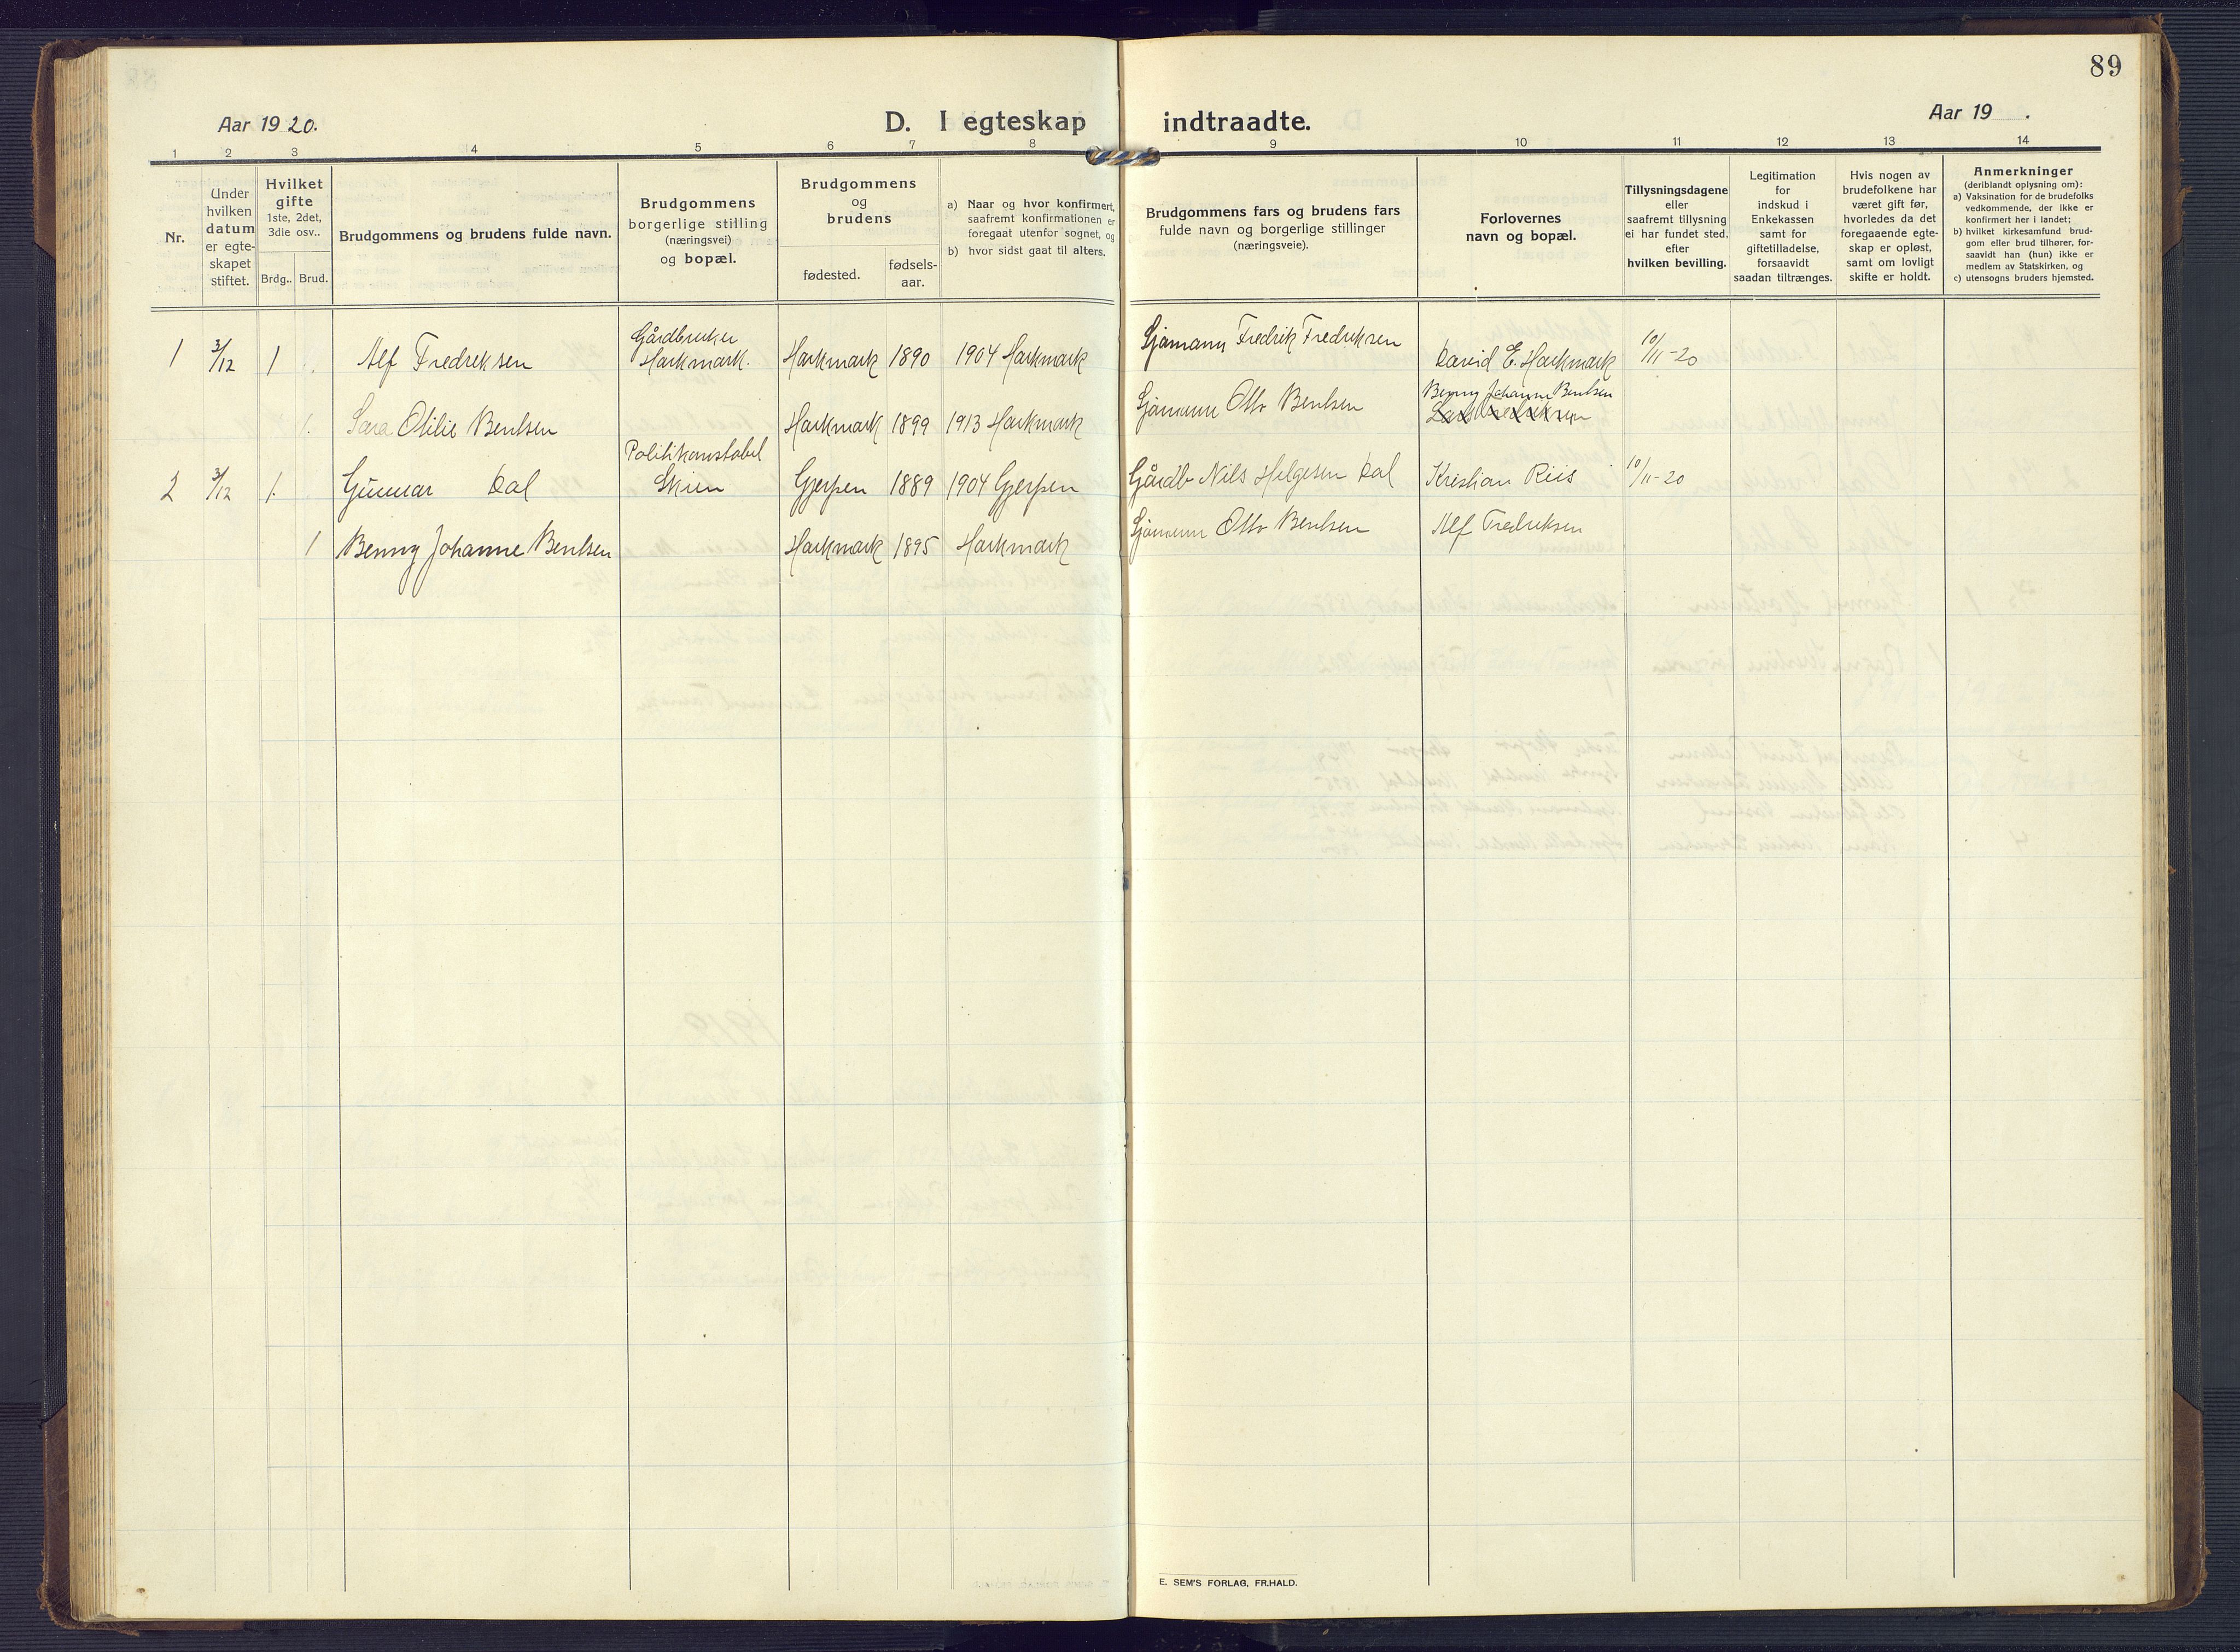 89
Aar 1920.
D. I egteskap indtraadte.
Aar 19 .
1 2 3 4 5 6 7 8 9 10 11 12 13 14
Nr.
Under
hvilken
datum
er egte-
skapet
stiftet.
Hvilket
gifte
1ste, 2det,
3die osv..
Brdg.. Brud.
Brudgommens og brudens fulde navn.
Brudgommens
borgerlige stilling
(næringsvei)
og bopæl.
Brudgommens
og
brudens
fødested.
fødsels-
aar.
a) Naar og hvor konfirmert,
saafremt konfirmationen er
foregaat utenfor sognet, og
b) hvor sidst gaat til alters.
Brudgommens fars og brudens fars
fulde navn og borgerlige stillinger
(næringsveie).
Forlovernes
navn og bopæl.
Tillysningsdagene
eller
saafremt tillysning
ei har fundet sted,
efter
hvilken bevilling.
Legitimation
for
indskud i
Enkekassen
samt for
giftetilladelse,
forsaavidt
saadan tiltrænges.
Hvis nogen av
brudefolkene har
været gift før,
hvorledes da det
foregaaende egte-
skap er opløst,
samt om lovligt
skifte er holdt.
Anmerkninger
(deriblandt oplysning om):
a) Vaksination for de brudefolks
vedkommende, der ikke er
konfirmert her i landet;
b) hvilket kirkesamfund brud-
gom eller brud tilhører, for-
saavidt han (hun) ikke er
medlem av Statskirken, og
c) utensogns bruders hjemsted.
Gårdbruker
1 3/12 1 Alf Fredriksen Harkmark. Harkmark 1890 1904 Harkmark Sjømann Fredrik Fredriksen David E. Harkmark 10/11-20
Benny Johanne Bentsen
1. Sara Otilie Bentsen Harkmark 1899 1913 Harkmark Sjømann Otto Bentsen
Politikonstabel
2 3/12 1. Gunnar Dal Skien Gjerpen 1889 1904 Gjerpen Gårdb Nils Helgesen Dal Kristian Riis 10/11-20
1 Benny Johanne Bentsen Harkmark 1895 Harkmark Sjømann Otto Bentsen Alf Fredriksen
E. SEM'S FORLAG, FR.HALD.